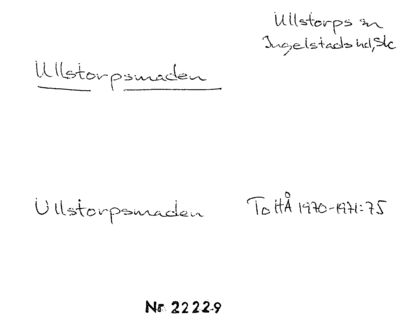 Ullstorps sn
Ingelstads hd, Sk
Ullstorpsmaden
Ullstorpsmaden ToHÅ 1970-1971:75
Nr 2222.9